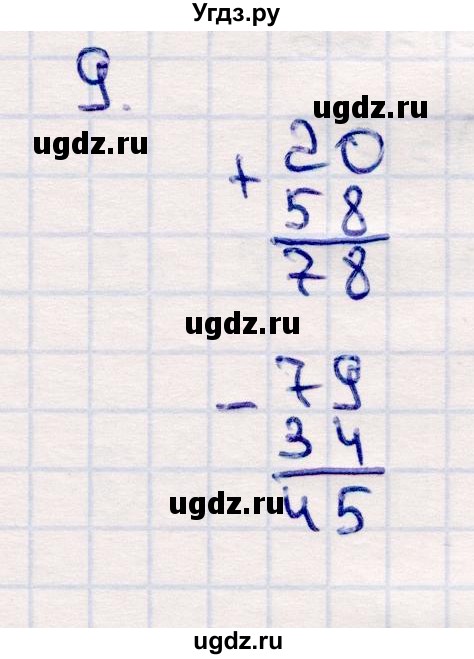 Угдз.ру
9.
ugdz.ru
ugdz.ru
+ 20
58
78
ugdz.ru
- 79
34
ugdz.ru
45
ugdz.ru